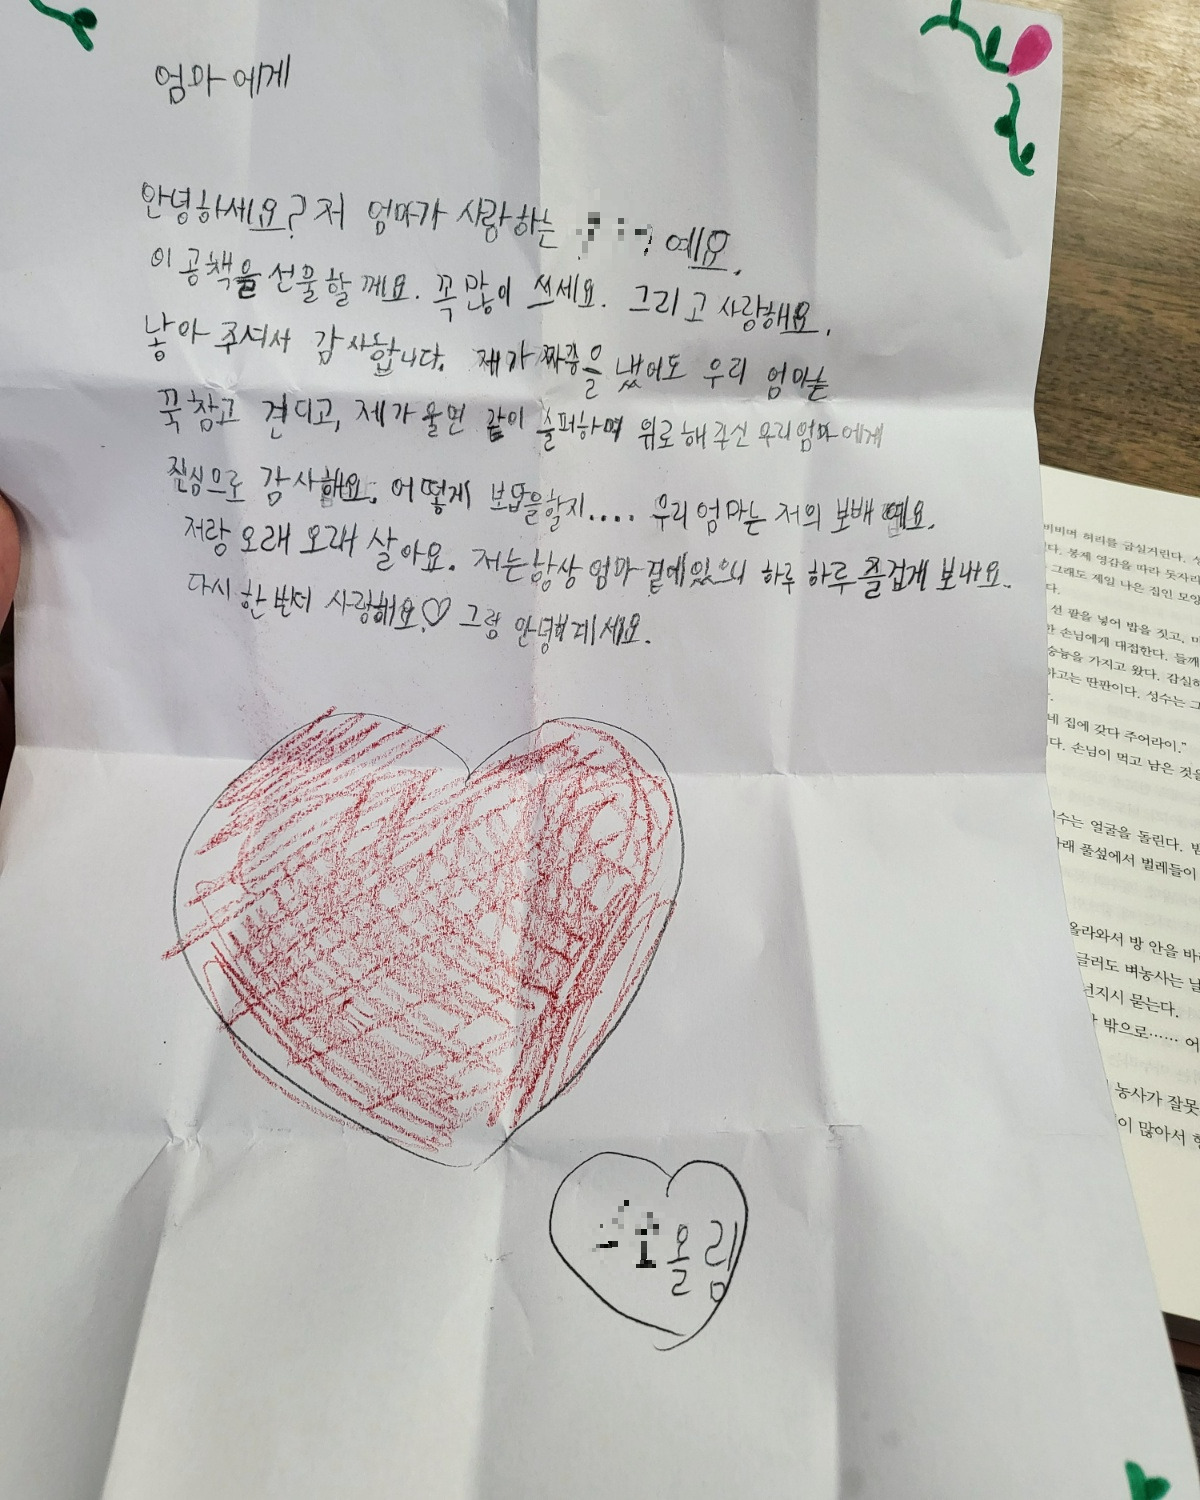 엄마에게
안녕하세요? 저 엄마가 사랑하는 예요.
이 공책을 선물할께요. 꼭 많이 쓰세요. 그리고 사랑해요.
낳아 주셔서 감사합니다. 제가 짜증을 냈어도 우리 엄마는
꾹 참고 견디고, 제가 울면 같이 슬퍼하며 위로해 주신 우리엄마에게
진심으로 감사해요. 어떻게 보답을할지.... 우리 엄마는 저의 보배예요.
저랑 오래 오래 살아요. 저는항상 엄마 곁에있으니 하루 하루 즐겁게 보내요.
다시 한 번더 사랑해요♡ 그럼 안녕히계세요.
올림
비비며 허리를 굽실거린다.
다. 봉제 영감을 따라 돗자리
그래도 제일 나은 집인 모양
다.
선 팥을 넣어 밥을 짓고,
손님에게 대접한다. 들깨
숭늉을 가지고 왔다.
하고는 딴판이다. 성수는 그
네 집에 갖다 주어라이."
다. 손님이 먹고 남은 것을
수는 얼굴을 돌린다.
아래 풀섶에서 벌레들이
올라와서 방 안을
글러도 벼농사는
넌지시 묻는다.
밖으로…… 어
농사가 잘못
이 많아서